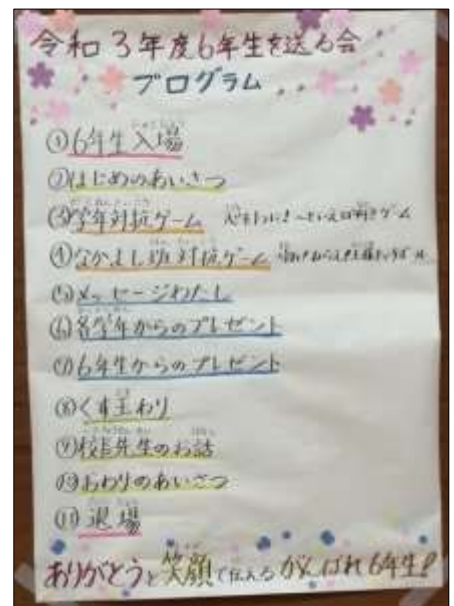 令和3年度6年生を送る会
プログラム
①6年生入場
②はじめのあいさつ
③学年対抗ゲーム
④なかよし班対抗ゲーム
⑤メッセージわたし
⑥各学年からのプレゼント
⑦6年生からのプレゼント
⑧くす玉わり
⑨校長先生のお話
⑩おわりのあいさつ
⑪退場
ありがとうと笑顔で伝える がんばれ6年生!